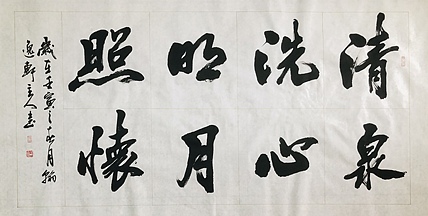 清泉
洗心
明月
照懷
歲在壬寅之秋月翰
逸軒主人書